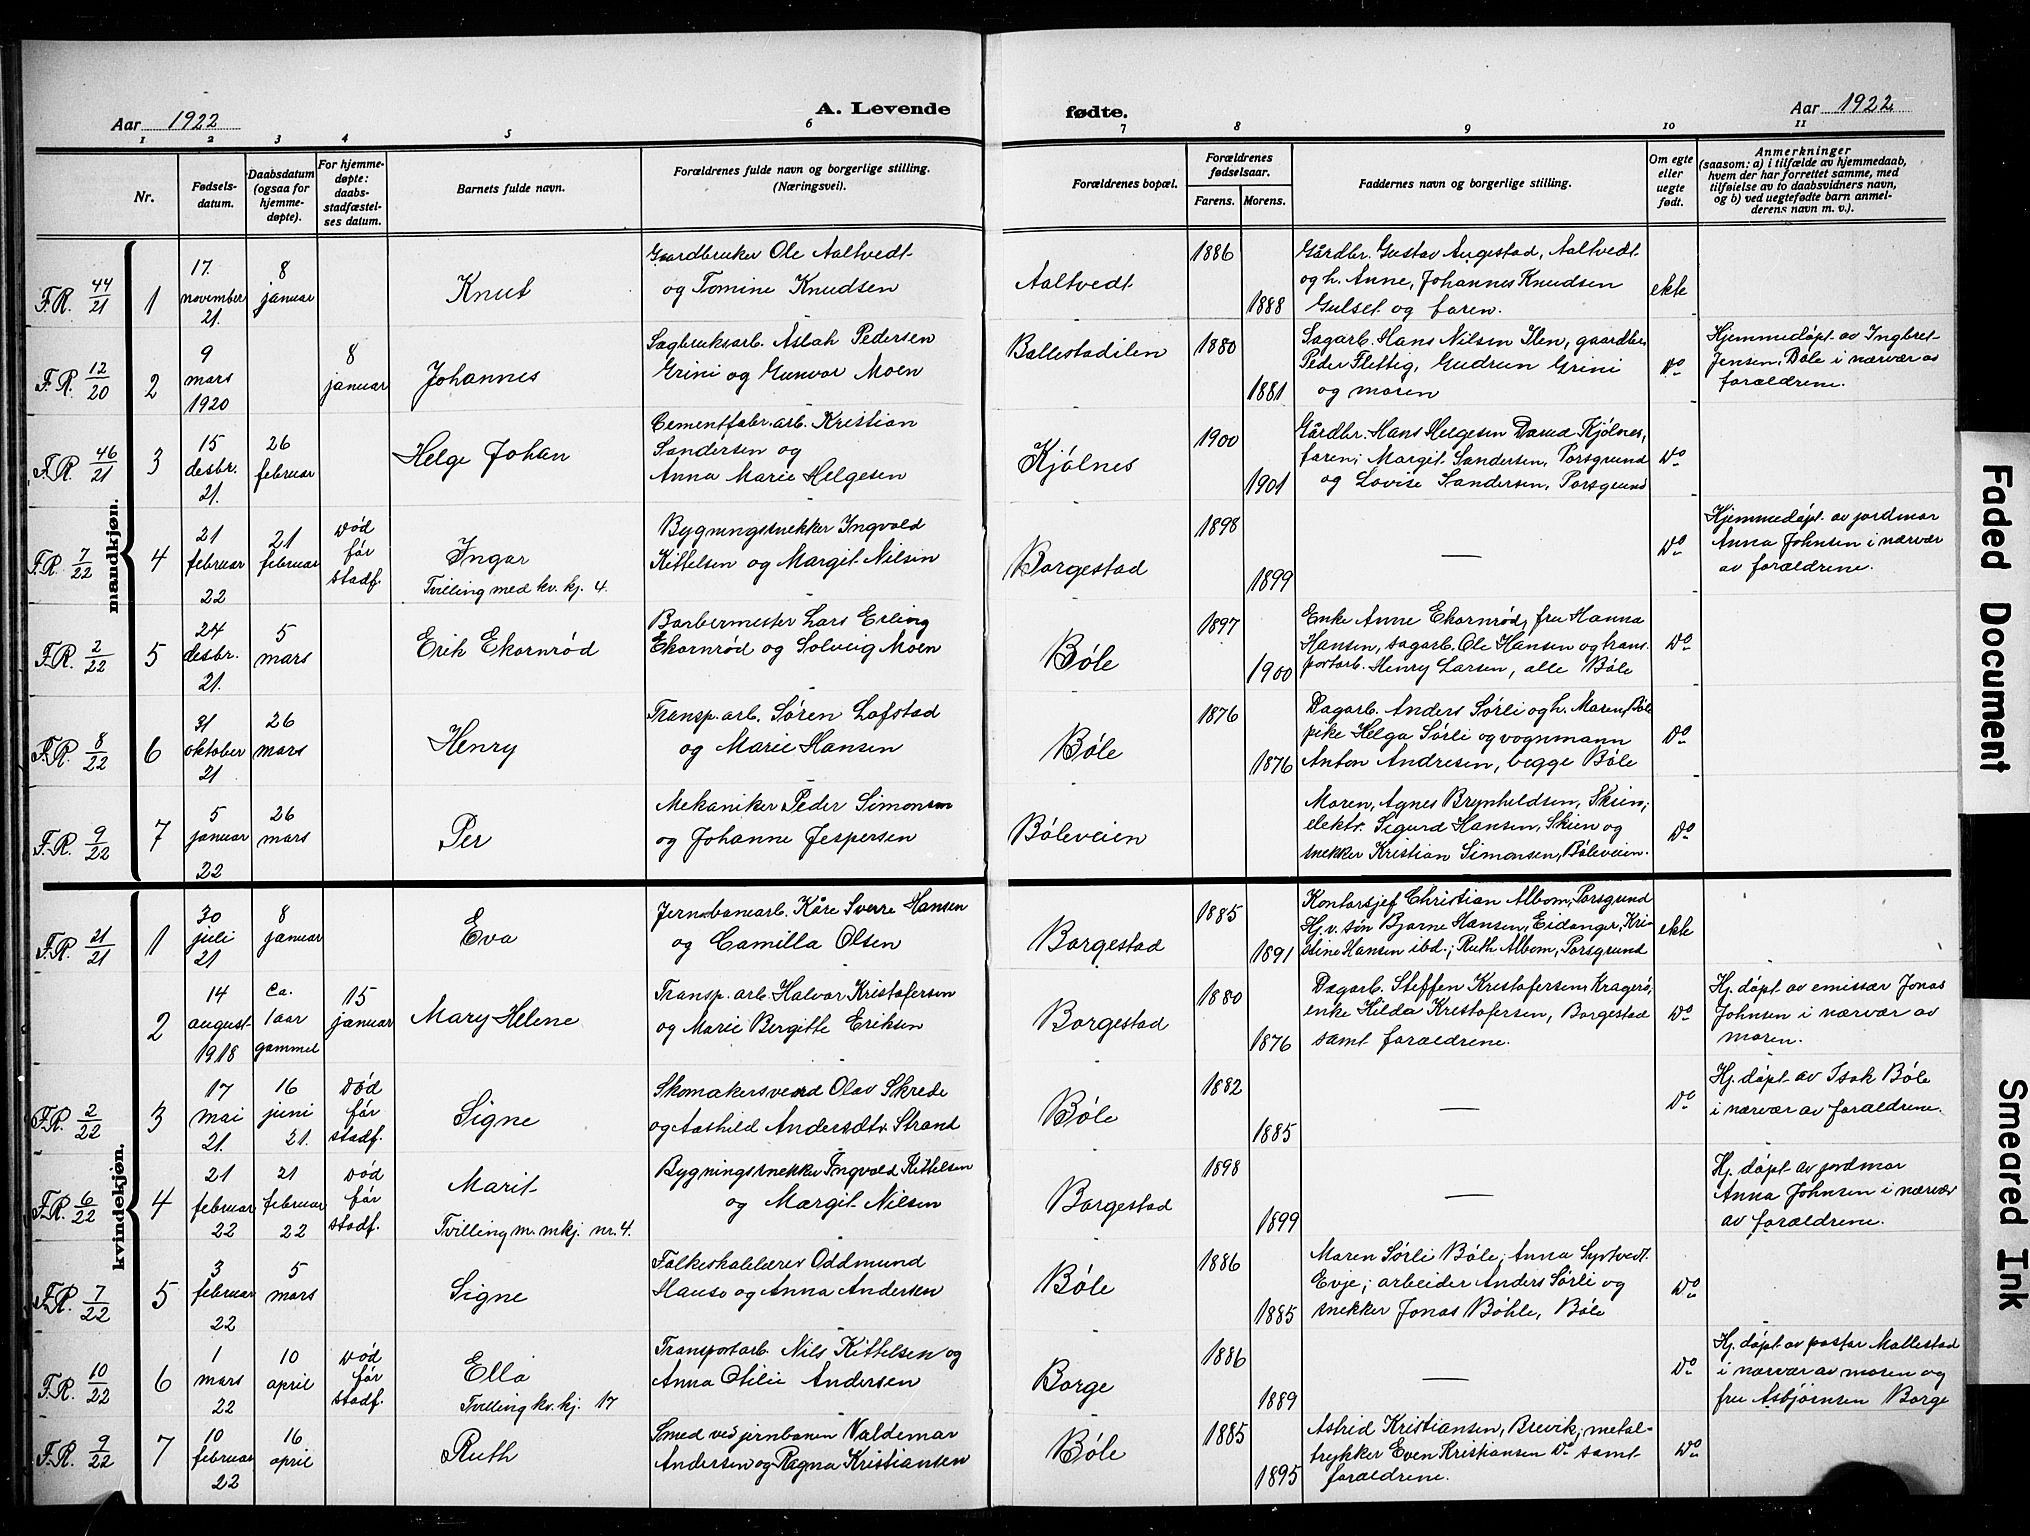 Aar 1922
A. Levende
fødte.
Aar 1922
1 2 3 4 5 6 7 8 9 10 11
Nr.
Fødsels-
datum.
Daabsdatum
(ogsaa for
hjemme-
døpte).
For hjemme-
døpte:
daabs-
stadfæstel-
ses datum.
Barnets fulde navn.
Forældrenes fulde navn og borgerlige stilling.
(Næringsvei).
Forældrenes bopæl.
Forældrenes
fødselsaar.
Farens. Morens.
Faddernes navn og borgerlige stilling.
Om egte
eller
uegte
født.
Anmerkninger
(saasom: a) i tilfælde av hjemmedaab,
hvem der har forrettet samme, med
tilføielse av to daabsvidners navn,
og b) ved uegtefødte barn anmel-
derens navn m. v.).
mandkjøn.
F.R. 44/21
1
17.
november
21.
8
januar
Knut
Gaardbruker Ole Aaltvedt
og Tomine Knudsen
Aaltvedt
1886
1888
Gårdbr. Gustav Augestad, Aaltvedt
og h. Anne, Johannes Knudsen
Gulset og faren.
ekte
F.R. 12/20
2
9
mars
1920
8
januar
Johannes
Sagbruksarb. Aslak Pedersen
Grini og Gunvor Moen
Ballestadilen
1880
1881
Sagarb. Hans Nilsen Ilen, gaardbr.
Peder Flittig, Gudrun Grini
og moren
Do
Hjemmedøpt av Ingbret
Jensen, Bøle i nærvær av
forældrene.
F.R. 46/21
3
15
desbr.
21.
26
februar
Helge Johan
Cementfabr.arb. Kristian
Sandersen og
Anna Marie Helgesen
Kjølnes
1900
1901
Gårdbr. Hans Helgesen Kjølnes,
faren, Margit Sandersen, Porsgrund
og Lovise Sandersen, Porsgrund
Do
F.R. 7/22
4
21
februar
22
21
februar
Død
før
stadf.
Ingar
Tvilling med kv. kj. 4.
Bygningsnekker Ingvald
Kittelsen og Margit Nilsen
Borgestad
1898
1899
—
Do
Hjemmedøpt av jordmor
Anna Johnsen i nærvær
av forældrene.
F.R. 2/22
5
24
desbr.
21.
5
mars
Erik Ekornrød
Barbermester Lars Erling
Ekornrød og Solveig Moen
Bøle
1897
1900
Enke Anne Ekornrød, fru Hanna
Hansen, sagarb. Ole Hansen og trans
portarb. Henry Larsen, alle Bøle
Do
F.R. 8/22
6
31
oktober
21
26
mars
Henry
Transp. arb. Søren Lofstad
og Marie Hansen
Bøle
1876
1876
Dagarb. Anders Sørli og h. Maren, Bøle
pike Helga Sørli og vognmann
Anton Andresen, begge Bøle
Do
F.R. 9/22
7
5
januar
22
26
mars
Per
Mekaniker Peder Simonsen
og Johanne Jespersen
Bøleveien
Moren, Agnes Brynhildsen, Skien,
elektr. Sigurd Hansen, Skien og
snekker Kristian Simonsen, Bøleveien.
Do
kvindekjøn.
F.R. 21/21
1
30
juli
21
8
januar
Eva
Jernbanearb. Kåre Sverre Hansen
og Camilla Olsen
Borgestad
1885
1891
Kontorsjef Christian Albom, Porsgrund
Hj. v. søn Bjarne Hansen, Eidanger, Kri-
stine Hansen ibd.; Ruth Albom, Porsgrund
ekte
2
14
august
1918
Ca.
1 aar
gammel
15
januar
Mary Helene
Transp. arb. Halvor Kristofersen
og Marie Bergitte Eriksen
Borgestad
1880
1876
Dagarb. Steffen Kristofersen, Kragerø,
enke Hilda Kristofersen, Borgestad
samt forældrene.
Do
Hj. døpt av emissær Jonas
Johnsen i nærvær av
moren.
F.R. 2/22
3
17
mai
21.
16
juni
21.
Død
før
stadf.
Signe
Skomakersvend Olav Skrede
og Aashild Andersdtr Strand
Bøle
1882
1885
—
Do
Hj. døpt av Isak Bøle
i nærvær av forældrene.
F.R. 6/22
4
21
februar
22
21
februar
22
Død
før
stadf.
Marit
Tvilling m. mkj. nr. 4.
Bygningsnekker Ingvald Kittelsen
og Margit Nilsen
Borgestad
1898
1899
—
Hj. døpt av jordmor
Anna Johnsen i nærvær
av forældrene.
F.R. 7/22
5
3
februar
22
5
mars
Signe
Folkeskolelærer Oddmund
Hauso og Anna Andersen
Bøle
1886
1885
Maren Sørli Bøle, Anna
Evje; arbeider Anders Sørli og
snekker Jonas Bøhle, Bøle
Do
F.R. 10/22
6
1
mars
22
10
april
Død
før
stadf.
Ella
Tvilling kv. kj. 17
Transportarb. Nils Kittelsen og
Anna Otilie Andersen
Borge
1886
1889
—
Do
Hj. døpt av pastor Mallestad
i nærvær av moren og
fru Asbjørnsen Borge
F.R. 9/22
7
10
februar
22
16
april
Ruth
Smed ved jernbanen Valdemar
Andersen og Ragna Kristiansen
Bøle
1885
1895
Astrid Kristiansen, Brevik, metal-
trykker Even Kristiansen Do samt
forældrene.
Do
Faded Document
Smeared Ink